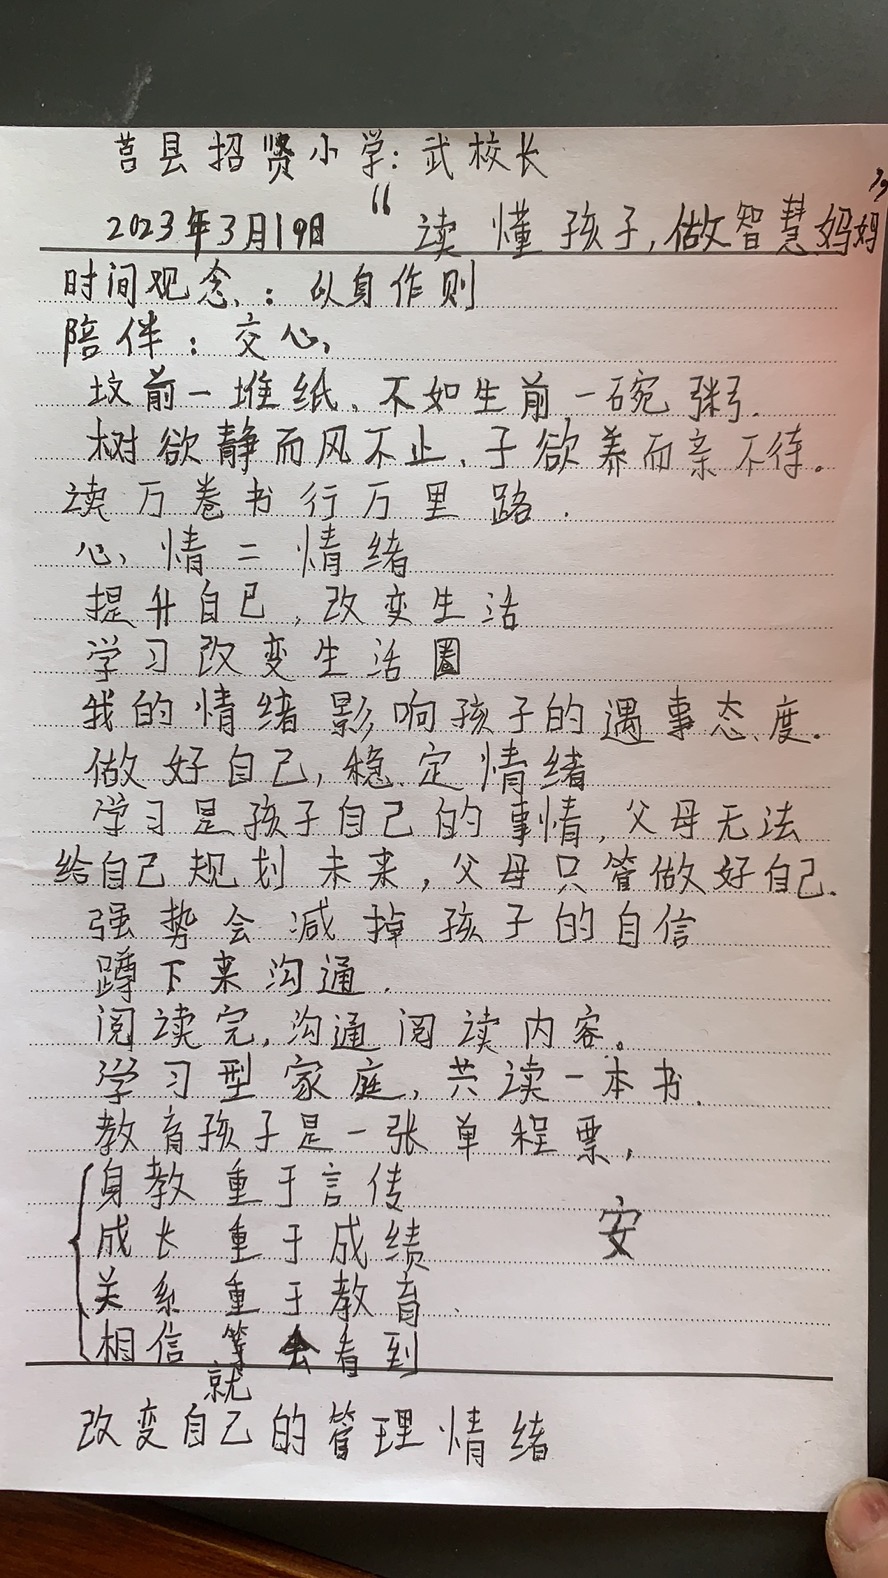 莒县招贤小学:武校长
2023年3月19日 “读懂孩子,做智慧妈妈”
时间观念:以身作则
陪伴:交心,
坟前一堆纸、不如生前一碗粥.
树欲静而风不止、子欲养而亲不待。
读万卷书行万里路.
心情二情绪
提升自己,改变生活
学习改变生活圈
我的情绪影响孩子的遇事态度.
做好自己,稳定情绪
学习是孩子自己的事情,父母无法
给自己规划未来,父母只管做好自己.
强势会减掉孩子的自信
蹲下来沟通.
阅读完,沟通阅读内容。
学习型家庭,共读一本书.
教育孩子是一张单程票,
身教重于言传
成长重于成绩 安
关系重于教育.
相信等会看到
就
改变自己的管理情绪